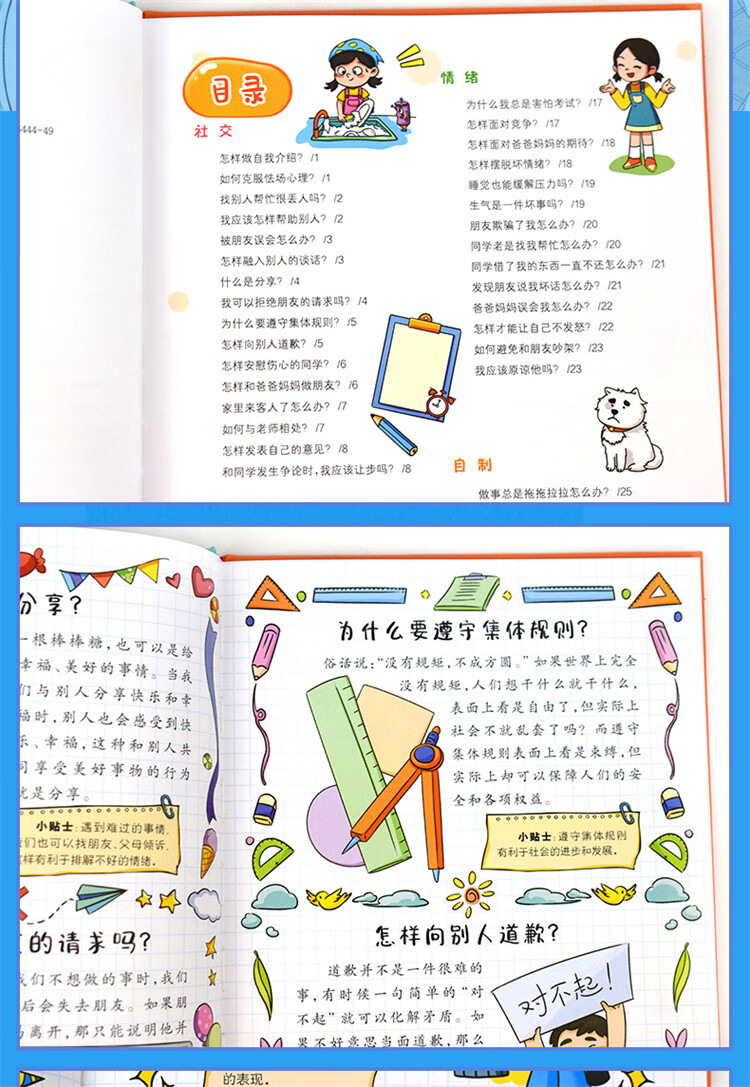 5444-49
目录
社交
怎样做自我介绍? /1
如何克服怯场心理? /1
找别人帮忙很丢人吗? /2
我应该怎样帮助别人? /2
被朋友误会怎么办? /3
怎样融入别人的谈话? /3
什么是分享? /4
我可以拒绝朋友的请求吗? /4
为什么要遵守集体规则? /5
怎样向别人道歉? /5
怎样安慰伤心的同学? /6
怎样和爸爸妈妈做朋友? /6
家里来客人了怎么办? /7
如何与老师相处? /7
怎样发表自己的意见? /8
和同学发生争论时,我应该让步吗? /8
情绪
为什么我总是害怕考试? /17
怎样面对竞争? /17
怎样面对爸爸妈妈的期待? /18
怎样摆脱坏情绪? /18
睡觉也能缓解压力吗? /19
生气是一件坏事吗? /19
朋友欺骗了我怎么办? /20
同学老是找我帮忙怎么办? /20
同学借了我的东西一直不还怎么办? /21
发现朋友说我坏话怎么办? /21
爸爸妈妈误会我怎么办? /22
怎样才能让自己不发怒? /22
如何避免和朋友吵架? /23
我应该原谅他吗? /23
自制
做事总是拖拖拉拉怎么办? /25
分享?
一根棒棒糖,也可以是给
幸福、美好的事情。当我
们与别人分享快乐和幸
福时,别人也会感受到快
乐、幸福,这种和别人共
同享受美好事物的行为
就是分享。
小贴士:遇到难过的事情,
我们也可以找朋友、父母倾诉,
这样有利于排解不好的情绪。
的请求吗?
我们不想做的事时,我们
后会失去朋友。如果朋
离开,那只能说明他并
为什么要遵守集体规则?
俗话说:“没有规矩,不成方圆。”如果世界上完全
没有规矩,人们想干什么就干什么,
表面上看是自由了,但实际上
社会不就乱套了吗?而遵守
集体规则表面上看是束缚,但
实际上却可以保障人们的安
全和各项权益。
小贴士:遵守集体规则
有利于社会的进步和发展。
怎样向别人道歉?
道歉并不是一件很难的
事,有时候一句简单的“对
不起”就可以化解矛盾。如
果不好意思当面道歉,那么
对不起!
的表现。